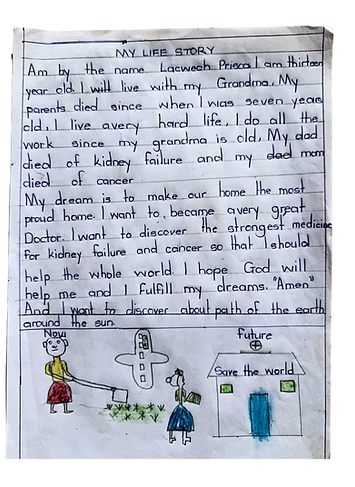 MY LIFE STORY
Am by the name Lacwech Prisca I am thirteen
year old. I will live with my Grandma. My
parents died since when I was seven years
old, I live avery hard life, I do all the
work since my grandma is old, My dad
died of kidney failure and my dad mom
died of cancer
My dream is to make our home the most
proud home. I want to, became avery great
Doctor. I want to discover the strongest medicine
for kidney failure and cancer so that I should
help the whole world. I hope God will
help me and I fulfill my dreams. "Amen"
And I want to discover about path of the earth
around the sun.
Now
future
Save the world